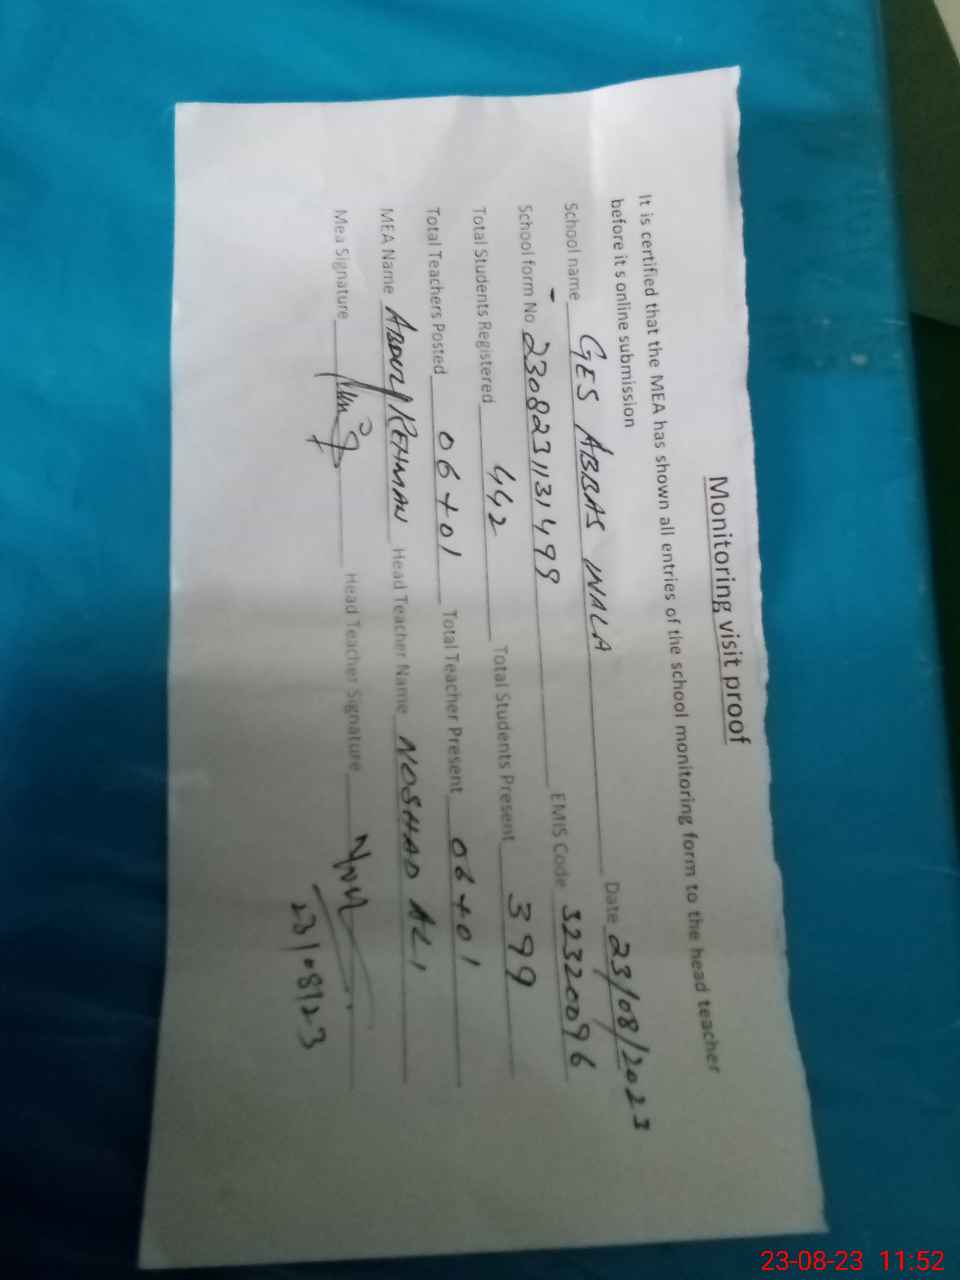 Monitoring visit proof
It is certified that the MEA has shown all entries of the school monitoring form to the head teacher
before it s online submission
School name GES ABBAS WALA Date 23/08/2023
School form No 2308231131499 EMIS Code 32320096
Total Students Registered 442 Total Students Present 399
Total Teachers Posted 06+01 Total Teacher Present 06+01
MEA Name ABDUL REHMAN Head Teacher Name NOSHAD ALI
Mea Signature Head Teacher Signature
23/08/23
23-08-23 11:52